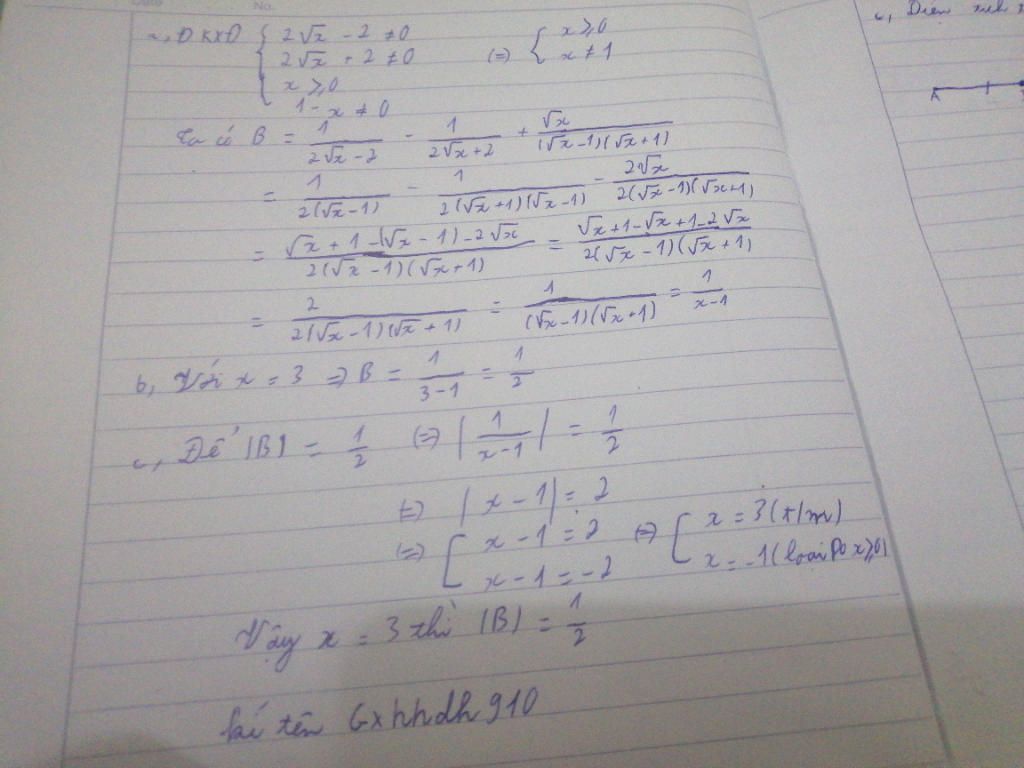 Date No.
a, ĐKXĐ { 2√x - 2 ≠ 0
2√x + 2 ≠ 0
x ≥ 0
1 - x ≠ 0 (=) { x ≥ 0
x ≠ 1
Ta có B = 1/(2√x - 2) - 1/(2√x + 2) + √x/((√x - 1)(√x + 1))
= 1/(2(√x - 1)) - 1/(2(√x + 1)(√x - 1)) - 2√x/(2(√x - 1)(√x + 1))
= (√x + 1 - (√x - 1) - 2√x)/(2(√x - 1)(√x + 1)) = (√x + 1 - √x + 1 - 2√x)/(2(√x - 1)(√x + 1))
= 2/(2(√x - 1)(√x + 1)) = 1/((√x - 1)(√x + 1)) = 1/(x - 1)
b, Với x = 3 => B = 1/(3 - 1) = 1/2
c, Để |B| = 1/2 (=) |1/(x - 1)| = 1/2
(=) |x - 1| = 2
(=) [ x - 1 = 2
x - 1 = -2 (=) [ x = 3 (t/m)
x = -1 (loại Do x ≥ 0)
Vậy x = 3 thì |B| = 1/2
kí tên Gxhhdh910
c, Diện
A